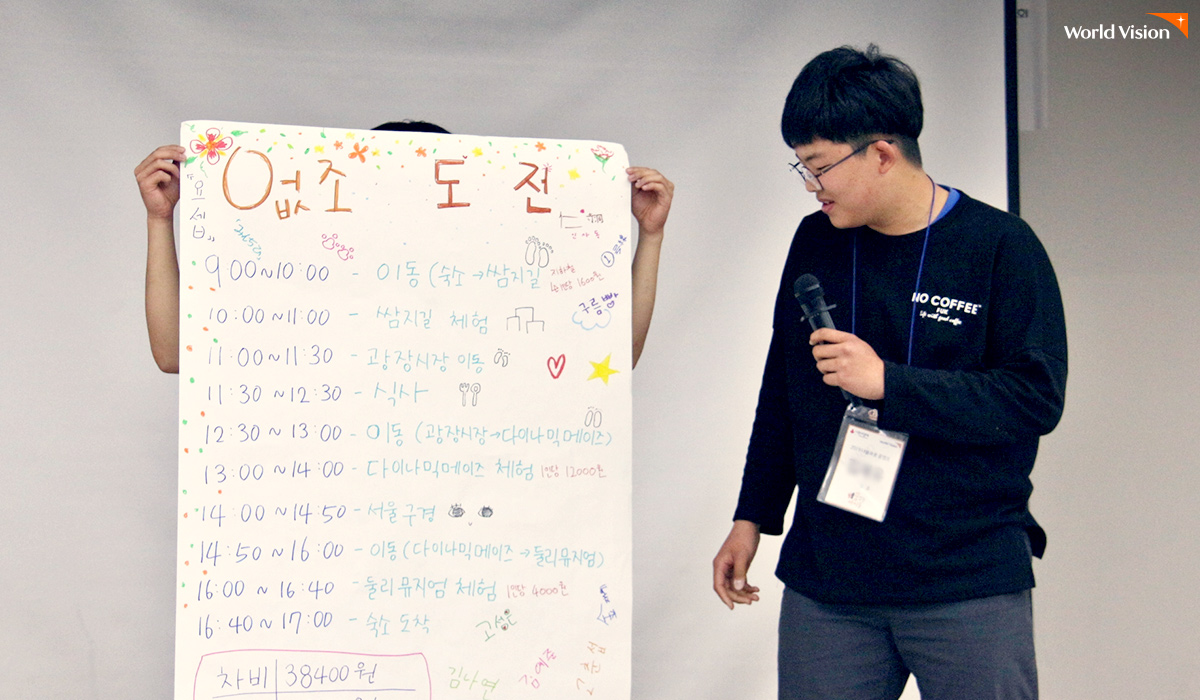 World Vision
0없조 도전
"요셉"
9:00~10:00 - 이동 (숙소→쌈지길
지하철
1인당 1600원
구름빵
10:00~11:00 - 쌈지길 체험
11:00~11:30 - 광장시장 이동
11:30~12:30 - 식사
12:30~13:00 - 이동 (광장시장→다이나믹메이즈)
13:00~14:00 - 다이나믹메이즈 체험 1인당 12000원
14:00~14:50 - 서울구경
14:50~16:00 - 이동 (다이나믹메이즈→둘리뮤지엄)
16:00~16:40 - 둘리뮤지엄 체험 1인당 4000원
16:40~17:00 - 숙소 도착
차비 38400원
김나연
NO COFFEE
FUK
Life with good coffee